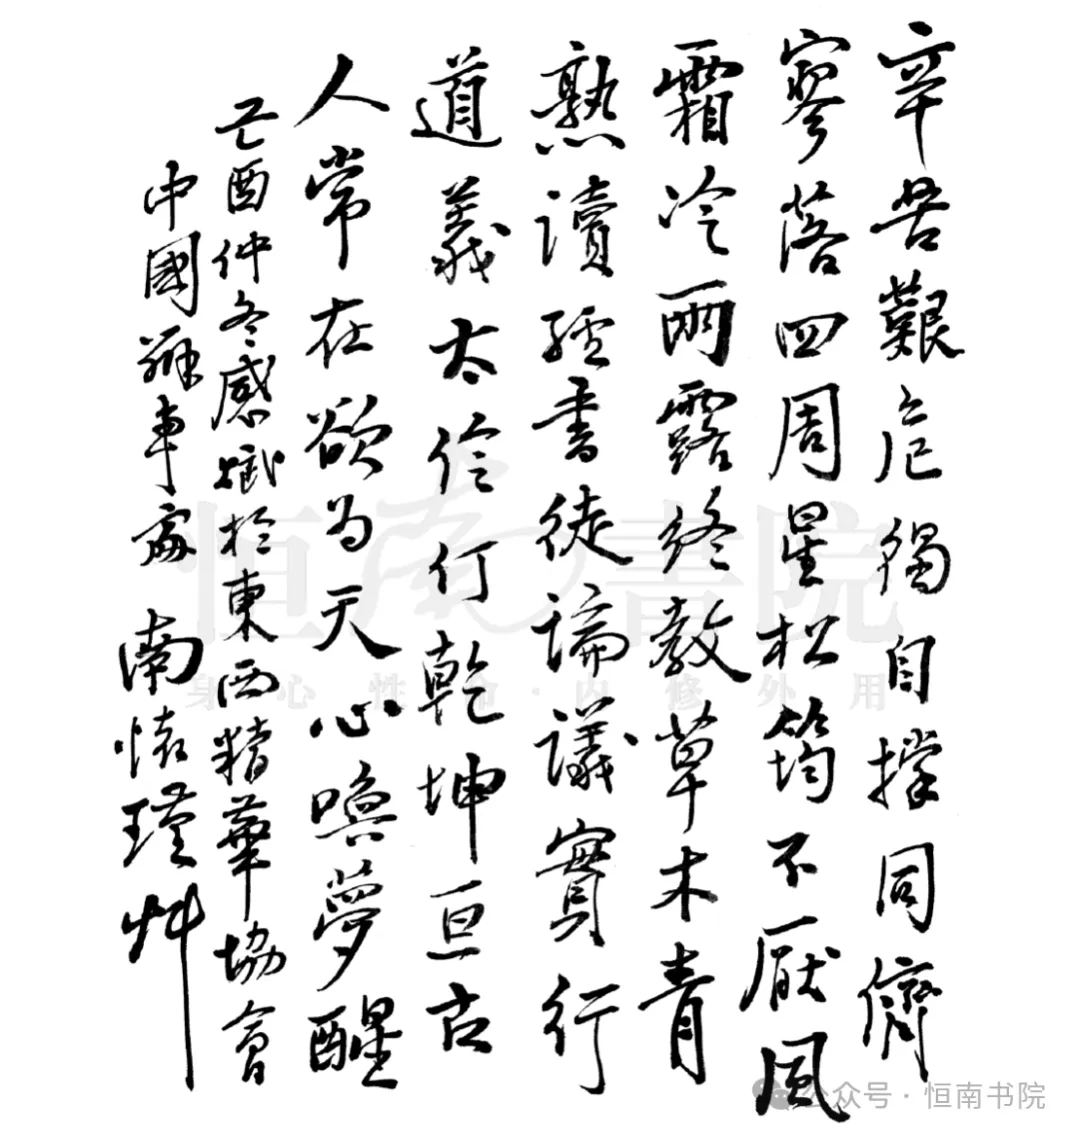 辛苦艱危獨自撐同儕
寥落四周星松筠不厭風
霜冷雨露終教草木青
熟讀經書徒論議實行
道義太伶仃乾坤亘古
人常在欲為天心喚夢醒
己酉仲冬感賦於東西精華協會
中國辦事處 南懷瑾艸
恒南書院
身心性命·内修外用
公众号 · 恒南书院